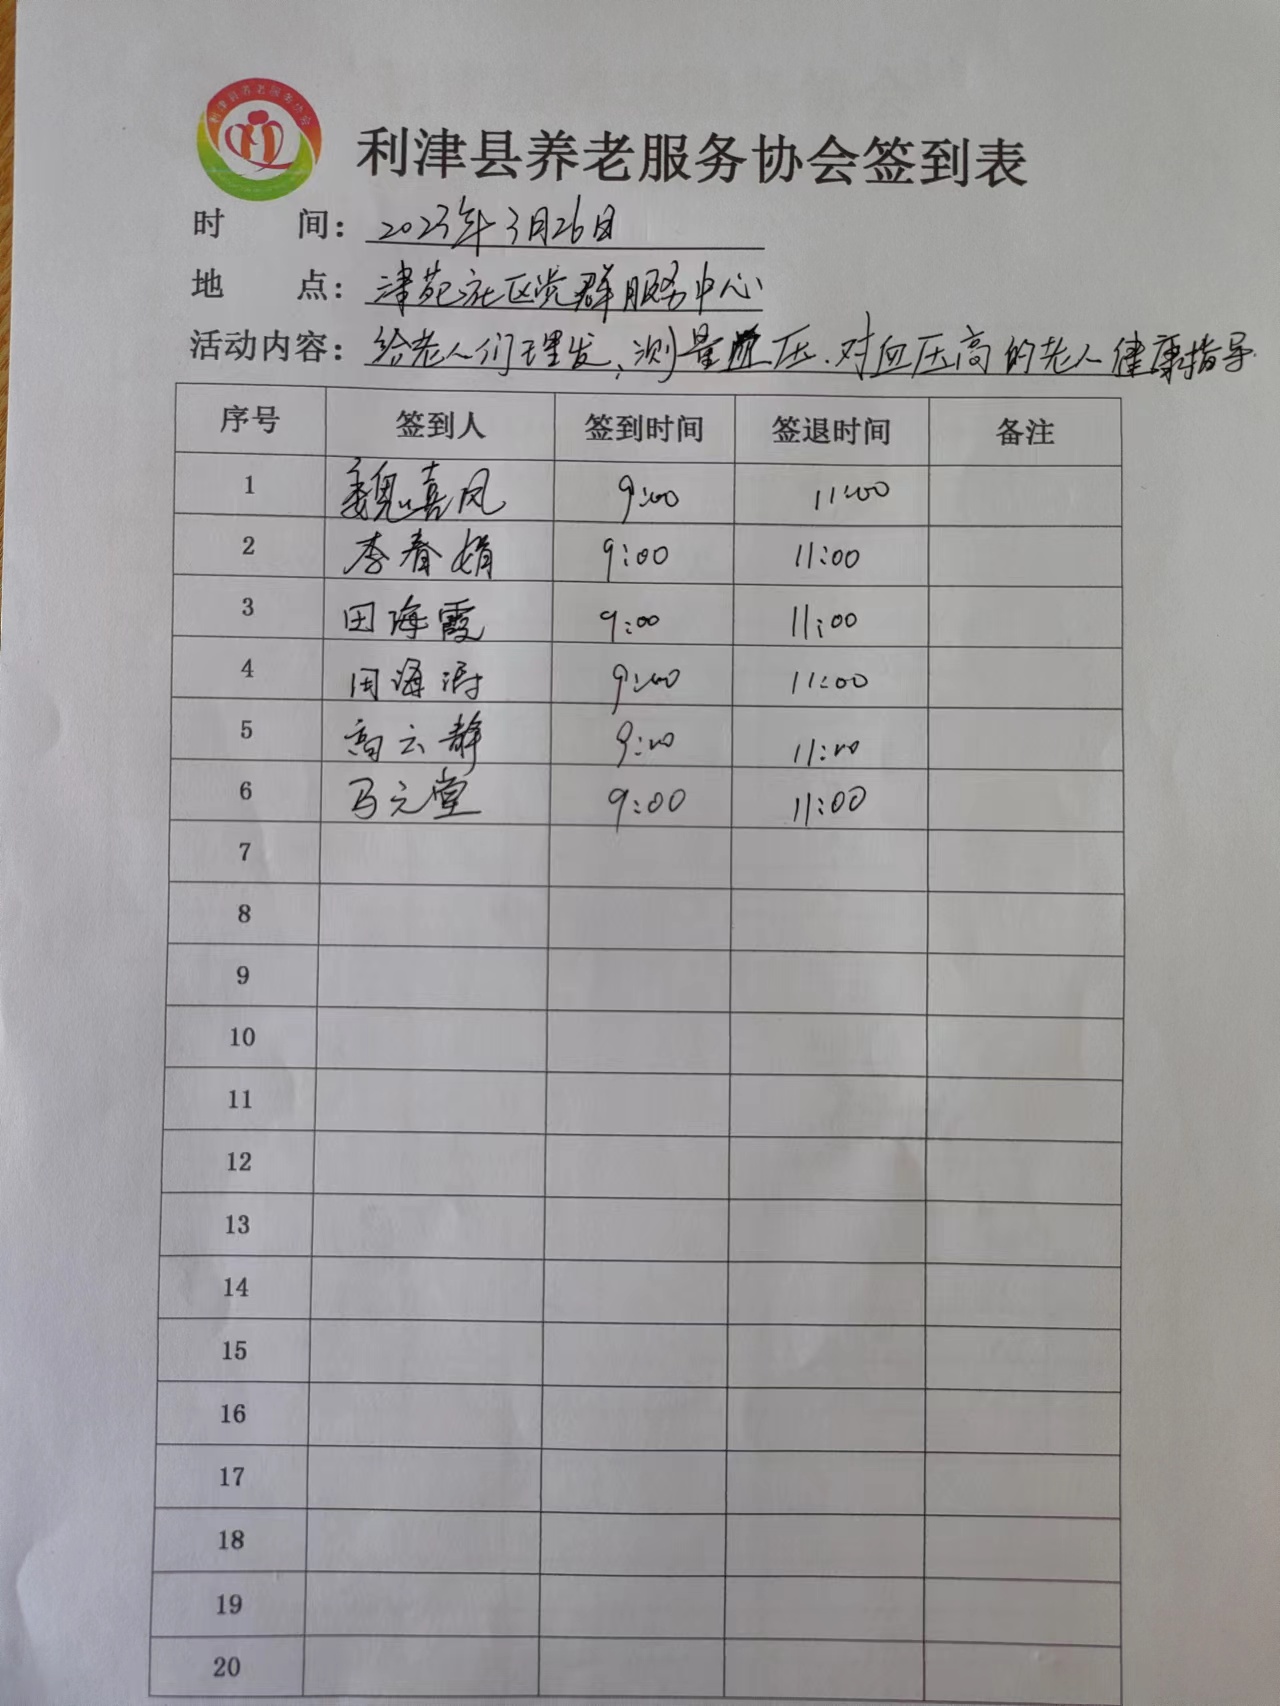 利津县养老服务协会
利津县养老服务协会签到表
时 间：2023年3月26日
地 点：津苑社区党群服务中心
活动内容：给老人们理发、测量血压、对血压高的老人健康指导
序号 签到人 签到时间 签退时间 备注
1 魏嘉凤 9:00 11:00
2 李春娟 9:00 11:00
3 田海霞 9:00 11:00
4 田海涛 9:00 11:00
5 高云静 9:00 11:00
6 马元堂 9:00 11:00
7
8
9
10
11
12
13
14
15
16
17
18
19
20